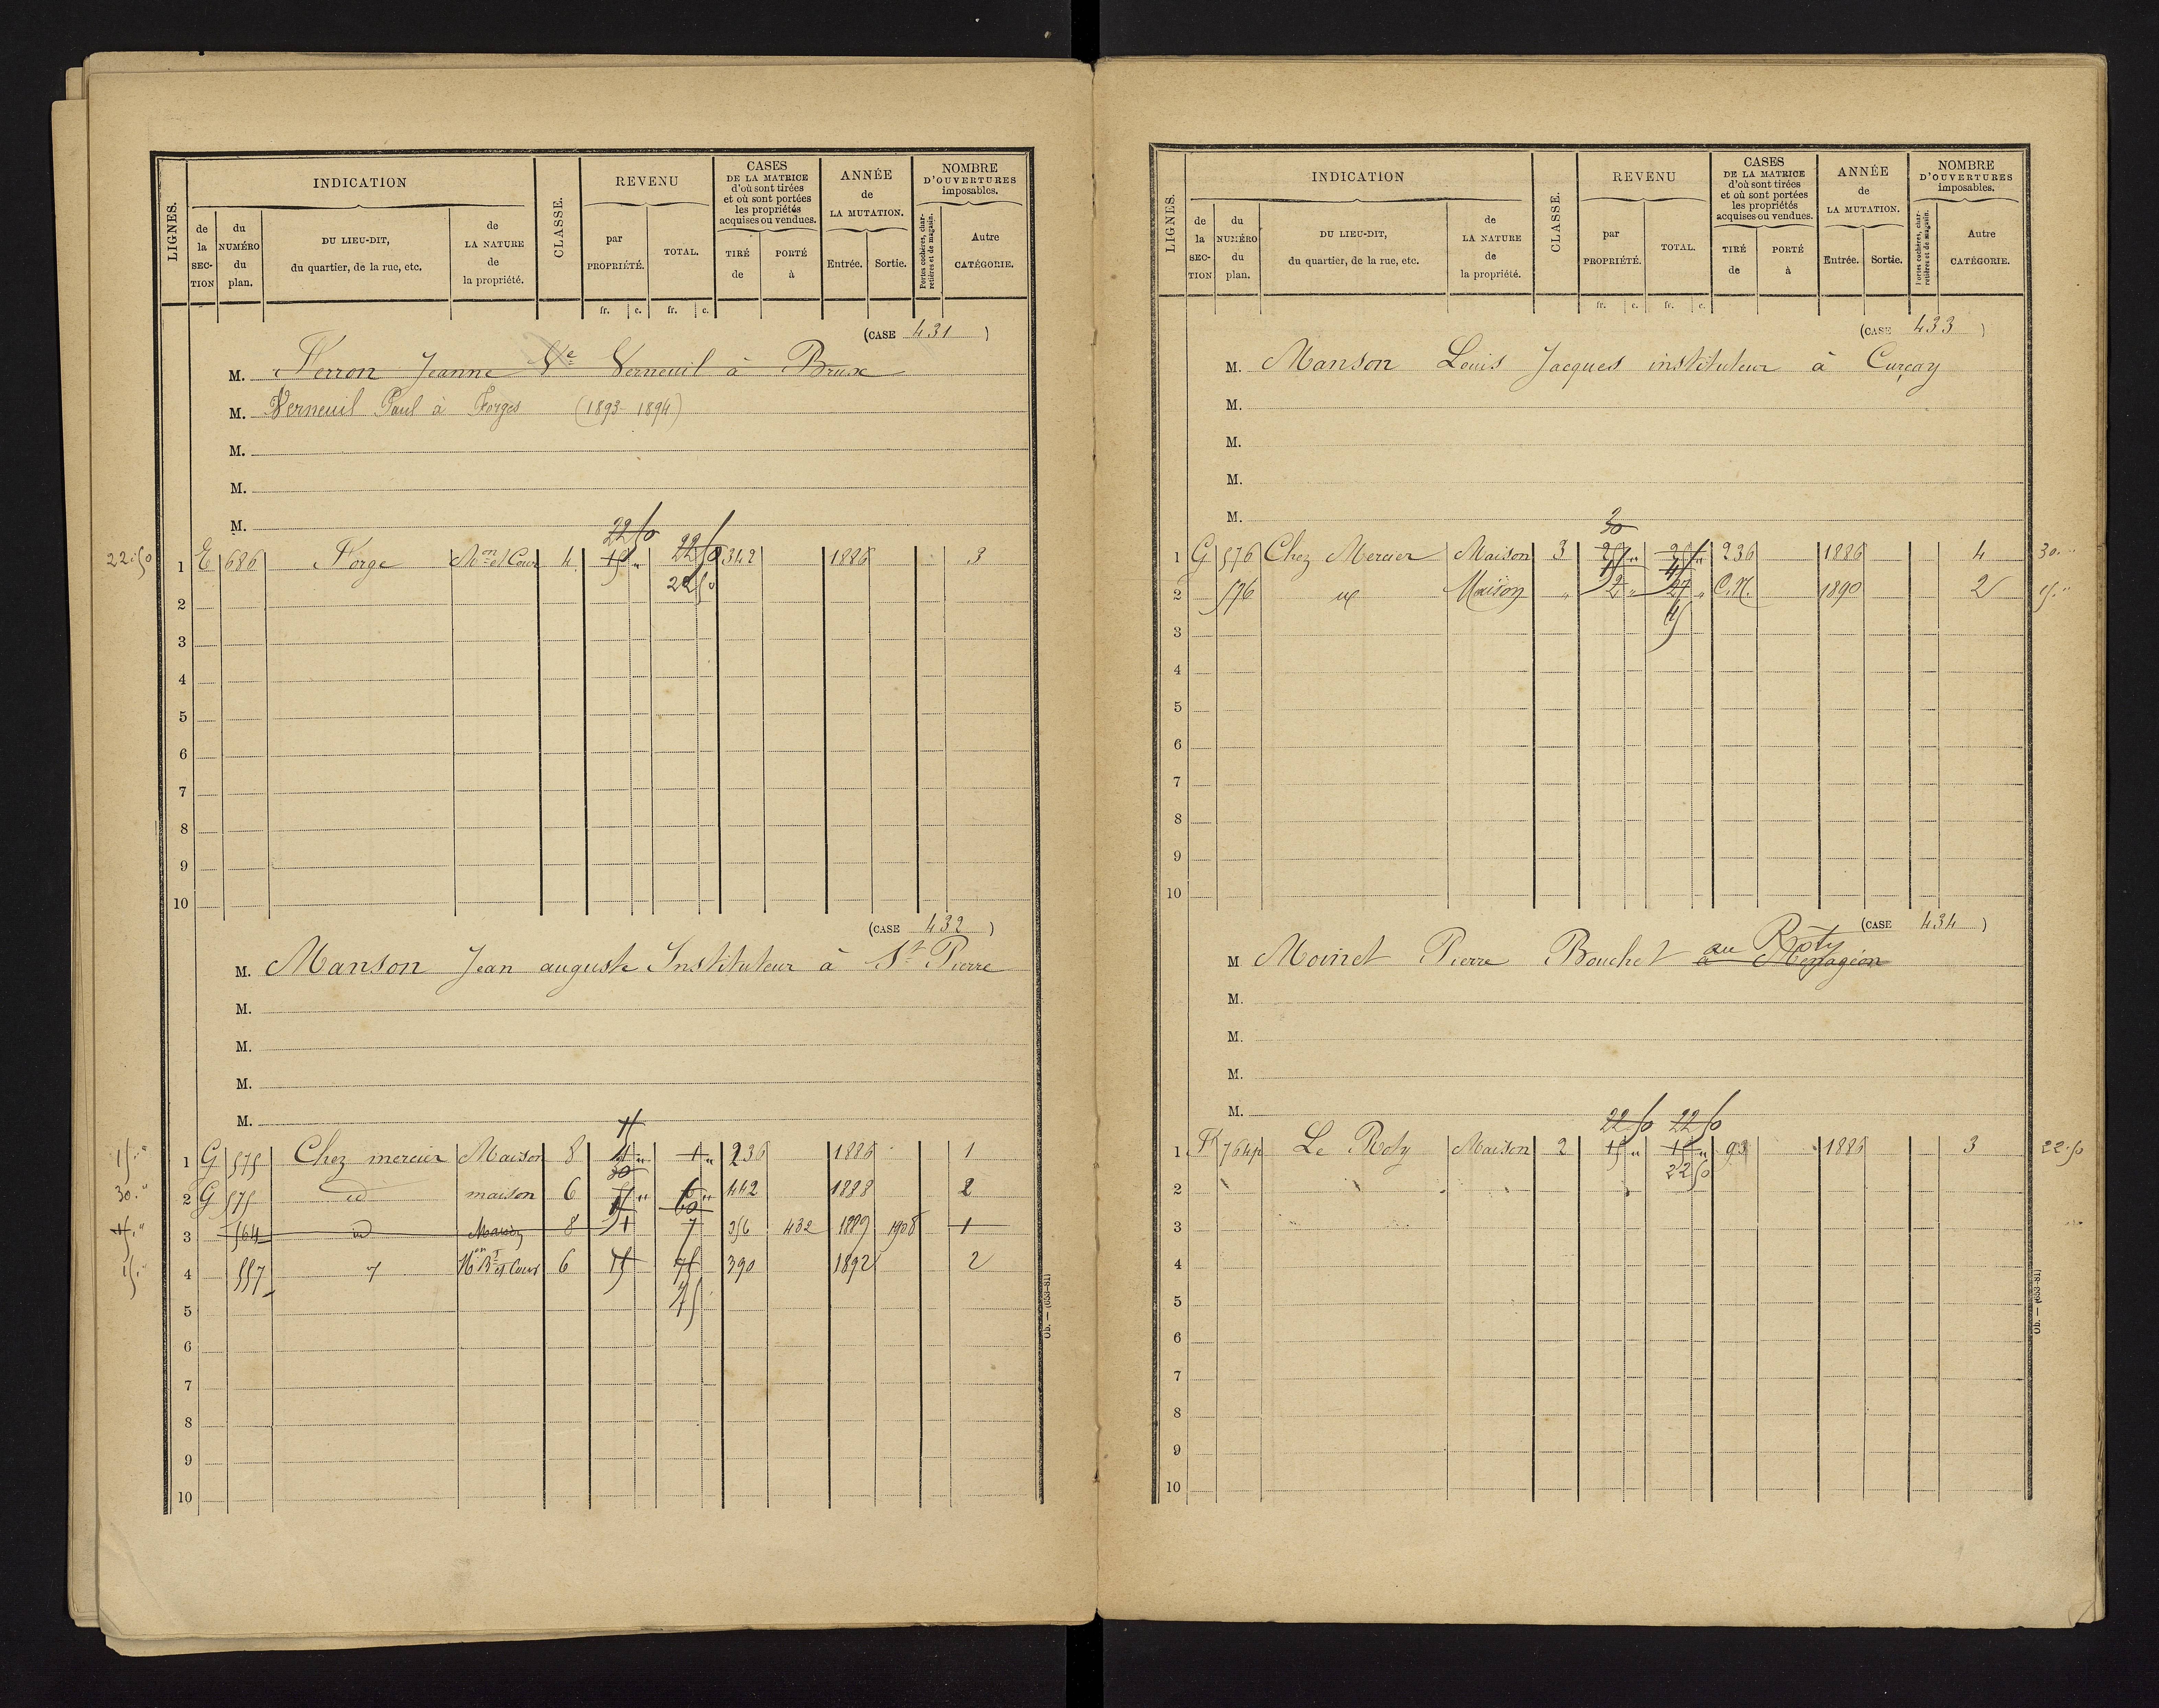 LIGNES. INDICATION CLASSE. REVENU CASES DE LA MATRICE d'où sont tirées et où sont portées les propriétés acquises ou vendues. ANNÉE de LA MUTATION. NOMBRE D'OUVERTURES imposables.
de la SECTION du NUMÉRO du plan. DU LIEU-DIT, du quartier, de la rue, etc. de LA NATURE de la propriété. par PROPRIÉTÉ. TOTAL. TIRÉ de PORTÉ à Entrée. Sortie. Portes cochères, charretières et de magasin. Autre CATÉGORIE.
fr. c. fr. c.
(CASE 431)
M. Ferron Jeanne Ve Verneuil à Brux
M. Verneuil Paul à Forges (1893-1894)
M.
M.
M.
22 50 22 50
22.50 1 E 686 Forge Mon et Cour 4 15 " 342 1886 3
22 50
2
3
4
5
6
7
8
9
10
(CASE 432)
M. Manson Jean auguste Instituteur à St Pierre
M.
M.
M.
M.
15
15." 1 G 575 Chez mercier Maison 8 1 " 236 1886 1
30
30." 2 G 575 id maison 6 5 " 6 " 442 1888 2
15 60
15." 3 564 id Maison 8 1 7 356 432 1889 1908 1
15." 4 557 Mon Bt et Cour 6 15 75 390 1892 2
75
5
6
7
8
9
10
Ob. — (653-81)
LIGNES. INDICATION CLASSE. REVENU CASES DE LA MATRICE d'où sont tirées et où sont portées les propriétés acquises ou vendues. ANNÉE de LA MUTATION. NOMBRE D'OUVERTURES imposables.
de la SECTION du NUMÉRO du plan. DU LIEU-DIT, du quartier, de la rue, etc. de LA NATURE de la propriété. par PROPRIÉTÉ. TOTAL. TIRÉ de PORTÉ à Entrée. Sortie. Portes cochères, charretières et de magasin. Autre CATÉGORIE.
fr. c. fr. c.
(CASE 433)
M. Manson Louis Jacques instituteur à Curçay
M.
M.
M.
M.
30
1 G 576 Chez Mercier Maison 3 25 " 25 " 236 1886 4 30."
15 45
2 576 id Maison " 2 " 27 " C.N. 1890 2 15."
45
3
4
5
6
7
8
9
10
(CASE 434)
M Moinet Pierre Bouchet à au Roty
M.
M.
M.
M.
22.50 22 50
1 764p Le Roty Maison 2 15 " 15 " 93 1886 3 22.50
22 50
2
3
4
5
6
7
8
9
10
Ob. — (653-81)